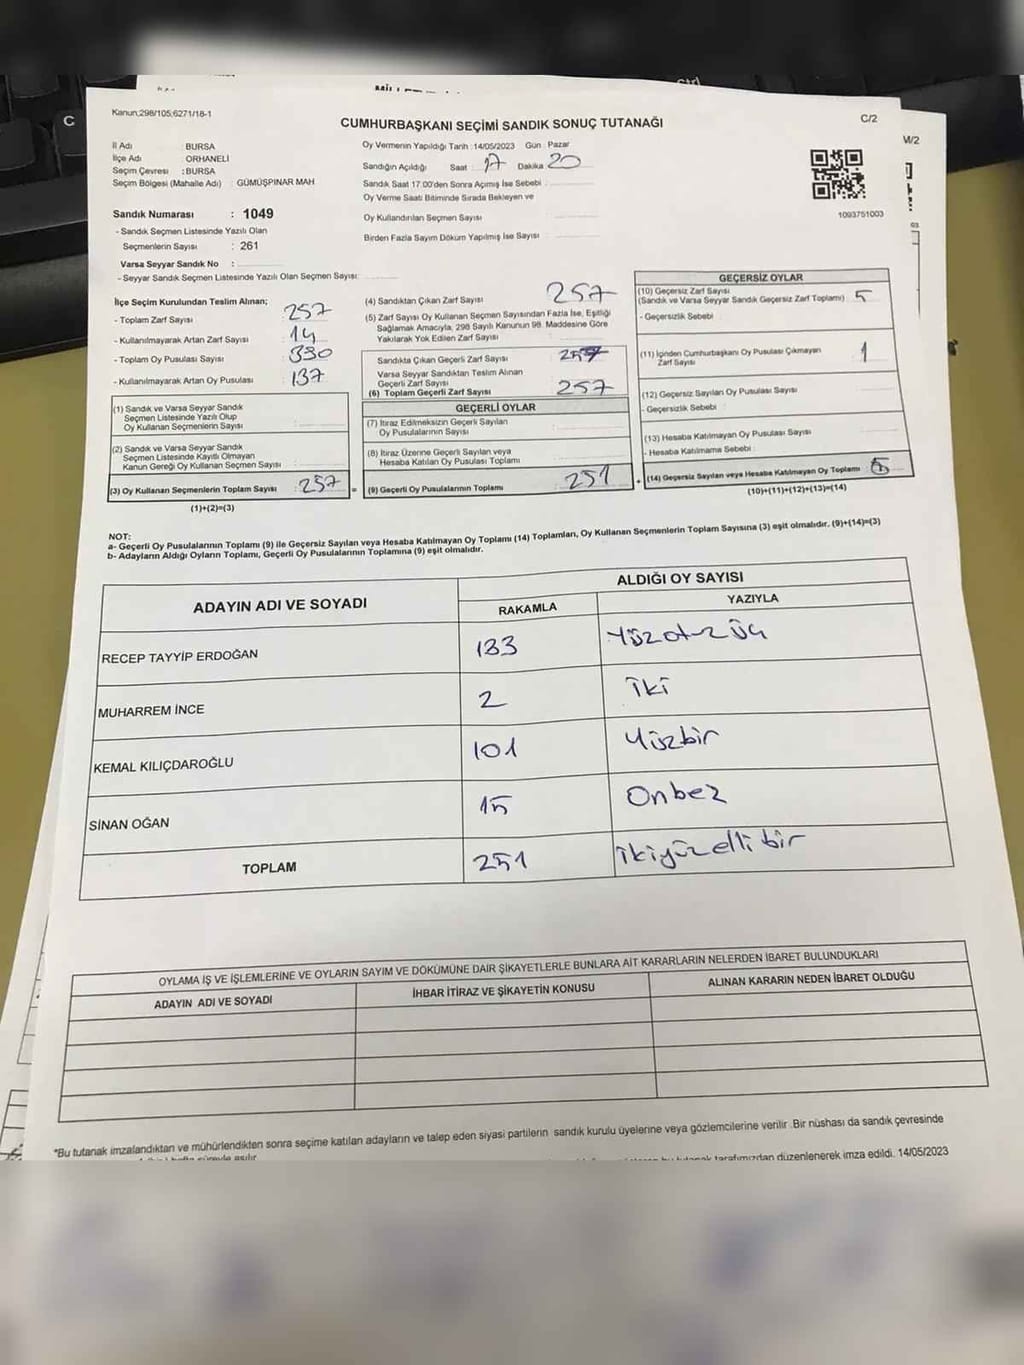 C
Ctrl
Kanun;298/105;6271/18-1
C/2
M/2
CUMHURBAŞKANI SEÇİMİ SANDIK SONUÇ TUTANAĞI
İl Adı : BURSA
İlçe Adı : ORHANELİ
Seçim Çevresi : BURSA
Seçim Bölgesi (Mahalle Adı) : GÜMÜŞPINAR MAH
Sandık Numarası : 1049
- Sandık Seçmen Listesinde Yazılı Olan
Seçmenlerin Sayısı : 261
Varsa Seyyar Sandık No :
- Seyyar Sandık Seçmen Listesinde Yazılı Olan Seçmen Sayısı:
Oy Vermenin Yapıldığı Tarih :14/05/2023 Gün : Pazar
Sandığın Açıldığı Saat : 17 Dakika : 20
Sandık Saat 17.00'den Sonra Açımış İse Sebebi :
Oy Verme Saati Bitiminde Sırada Bekleyen ve
Oy Kullandırılan Seçmen Sayısı :
Birden Fazla Sayım Döküm Yapılmış İse Sayısı :
1093751003
İlçe Seçim Kurulundan Teslim Alınan;
- Toplam Zarf Sayısı : 257
- Kullanılmayarak Artan Zarf Sayısı : 14
- Toplam Oy Pusulası Sayısı : 330
- Kullanılmayarak Artan Oy Pusulası : 137
(1) Sandık ve Varsa Seyyar Sandık
Seçmen Listesinde Yazılı Olup
Oy Kullanan Seçmenlerin Sayısı :
(2) Sandık ve Varsa Seyyar Sandık
Seçmen Listesinde Kayıtlı Olmayan
Kanun Gereği Oy Kullanan Seçmen Sayısı :
(3) Oy Kullanan Seçmenlerin Toplam Sayısı : 257 =
(1)+(2)=(3)
(4) Sandıktan Çıkan Zarf Sayısı : 257
(5) Zarf Sayısı Oy Kullanan Seçmen Sayısından Fazla İse, Eşitliği
Sağlamak Amacıyla, 298 Sayılı Kanunun 98. Maddesine Göre
Yakılarak Yok Edilen Zarf Sayısı :
Sandıkta Çıkan Geçerli Zarf Sayısı : 257
Varsa Seyyar Sandıktan Teslim Alınan
Geçerli Zarf Sayısı :
(6) Toplam Geçerli Zarf Sayısı : 257
GEÇERLİ OYLAR
(7) İtiraz Edilmeksizin Geçerli Sayılan
Oy Pusulalarının Sayısı :
(8) İtiraz Üzerine Geçerli Sayılan veya
Hesaba Katılan Oy Pusulası Toplamı :
(9) Geçerli Oy Pusulalarının Toplamı : 251 +
GEÇERSİZ OYLAR
(10) Geçersiz Zarf Sayısı
(Sandık ve Varsa Seyyar Sandık Geçersiz Zarf Toplamı) : 5
- Geçersizlik Sebebi :
(11) İçinden Cumhurbaşkanı Oy Pusulası Çıkmayan
Zarf Sayısı : 1
(12) Geçersiz Sayılan Oy Pusulası Sayısı :
- Geçersizlik Sebebi :
(13) Hesaba Katılmayan Oy Pusulası Sayısı :
- Hesaba Katılmama Sebebi :
(14) Geçersiz Sayılan veya Hesaba Katılmayan Oy Toplamı :
(10)+(11)+(12)+(13)=(14)
NOT:
a- Geçerli Oy Pusulalarının Toplamı (9) ile Geçersiz Sayılan veya Hesaba Katılmayan Oy Toplamı (14) Toplamları, Oy Kullanan Seçmenlerin Toplam Sayısına (3) eşit olmalıdır. (9)+(14)=(3)
b- Adayların Aldığı Oyların Toplamı, Geçerli Oy Pusulalarının Toplamına (9) eşit olmalıdır.
ADAYIN ADI VE SOYADI
ALDIĞI OY SAYISI
RAKAMLA YAZIYLA
RECEP TAYYİP ERDOĞAN 133 Yüzotuzüç
MUHARREM İNCE 2 İki
KEMAL KILIÇDAROĞLU 101 Yüzbir
SİNAN OĞAN 15 Onbeş
TOPLAM 251 ikiyüzellibir
OYLAMA İŞ VE İŞLEMLERİNE VE OYLARIN SAYIM VE DÖKÜMÜNE DAİR ŞİKAYETLERLE BUNLARA AİT KARARLARIN NELERDEN İBARET BULUNDUKLARI
ADAYIN ADI VE SOYADI İHBAR İTİRAZ VE ŞİKAYETİN KONUSU ALINAN KARARIN NEDEN İBARET OLDUĞU
*Bu tutanak imzalandıktan ve mühürlendikten sonra seçime katılan adayların ve talep eden siyasi partilerin sandık kurulu üyelerine veya gözlemcilerine verilir .Bir nüshası da sandık çevresinde
tarafımızdan düzenlenerek imza edildi. 14/05/2023